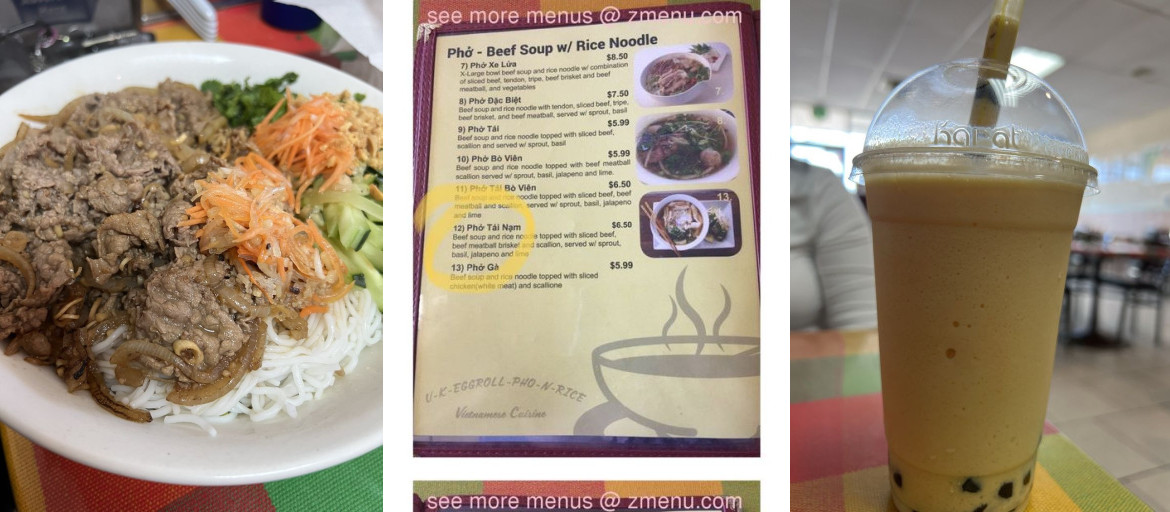 see more menus @ zmenu.com
Phở - Beef Soup w/ Rice Noodle
7) Phở Xe Lửa $8.50
X-Large bowl beef soup and rice noodle w/ combination
of sliced beef, tendon, tripe, beef brisket and beef
meatball, and vegetables
8) Phở Đặc Biệt $7.50
Beef soup and rice noodle with tendon, sliced beef, tripe,
beef brisket, and beef meatball, served w/ sprout, basil
9) Phở Tái $5.99
Beef soup and rice noodle topped with sliced beef,
scallion and served w/ sprout, basil
10) Phở Bò Viên $5.99
Beef soup and rice noodle topped with beef meatball
scallion served w/ sprout, basil, jalapeno and lime.
11) Phở Tái Bò Viên $6.50
Beef soup and rice noodle topped with sliced beef, beef
meatball and scallion, served w/ sprout, basil, jalapeno
and lime
12) Phở Tái Nạm $6.50
Beef soup and rice noodle topped with sliced beef,
beef meatball brisket and scallion, served w/ sprout,
basil, jalapeno and lime
13) Phở Gà $5.99
Beef soup and rice noodle topped with sliced
chicken(white meat) and scallione
7
8
13
U-K-EGGROLL-PHO-N-RICE
Vietnamese Cuisine
see more menus @ zmenu.com
Karat